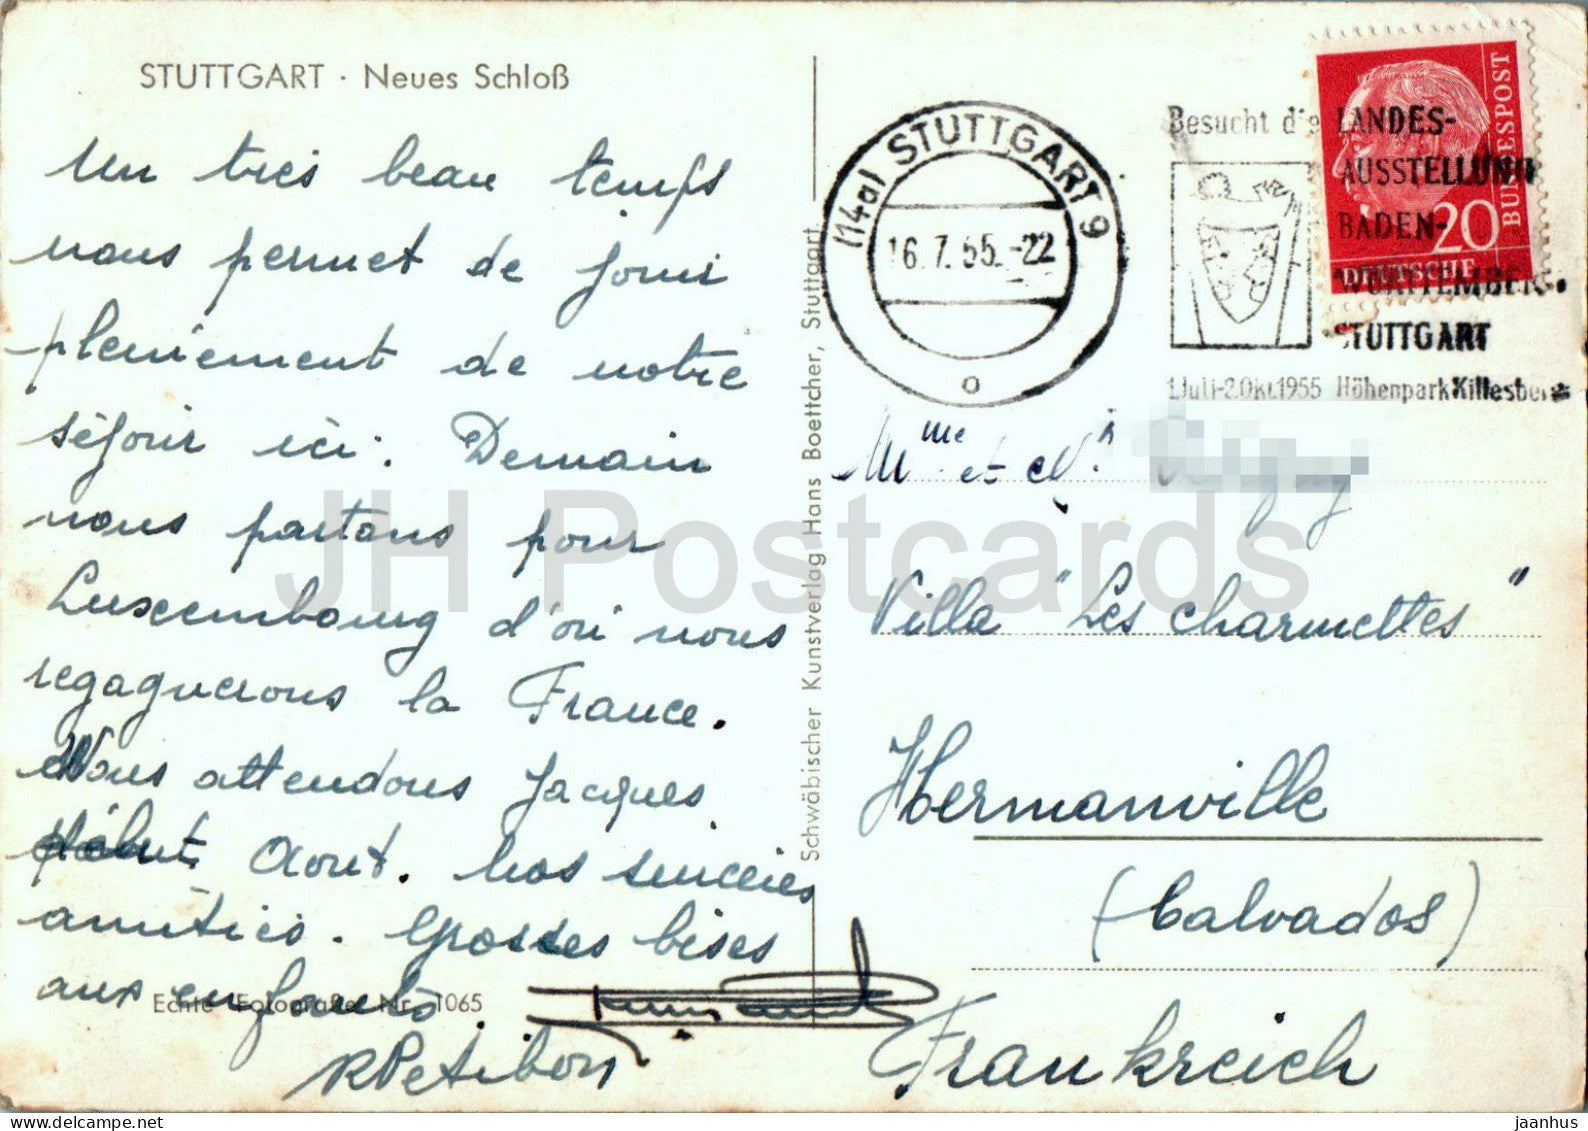 STUTTGART · Neues Schloß
Un très beau temps
nous permet de jouir
pleniement de notre
séjour ici. Demain
nous partons pour
Luxembourg d'où nous
regagnerons la France.
Nous attendons Jacques
début Aout. Nos sincères
amitiés. Grosses bises
aux enfants
RPetibon
Echte Fotografie Nr. 1065
Schwäbischer Kunstverlag Hans Boettcher, Stuttgart
(14a) STUTTGART 9
16.7.55.-22
o
Besucht die LANDES-
AUSSTELLUNG
BADEN-
WÜRTTEMBERG.
STUTTGART
1.Juli-2.Okt.1955 Höhenpark Killesberg
20
DEUTSCHE
BUNDESPOST
Mme et Mr
Villa "Les Charmettes"
Hermanville
(Calvados)
Frankreich
JH Postcards
jaanhus - https://www.delcampe.net